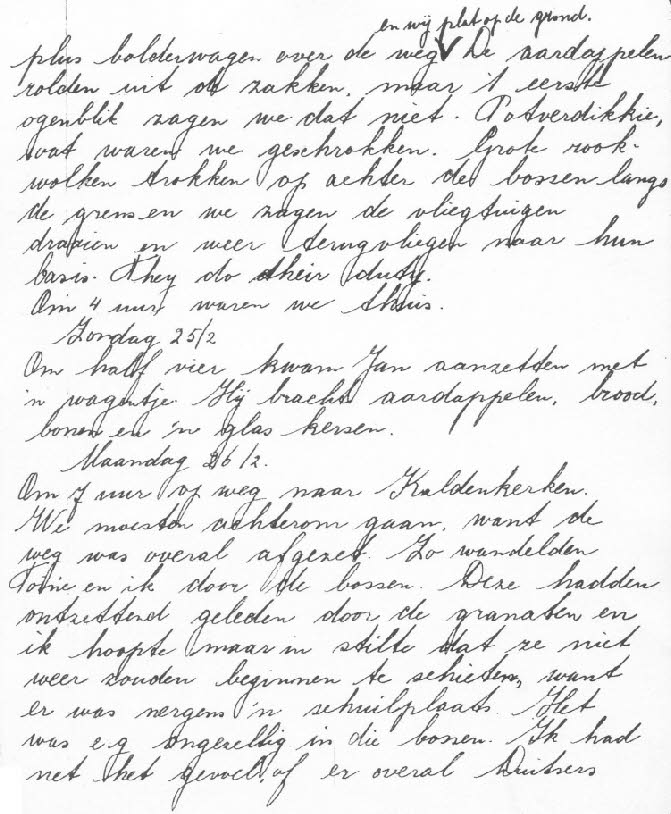 en wij plat op de grond.
plus bolderwagen over de weg V De aardappelen
rolden uit de zakken, maar 't eerste
ogenblik zagen we dat niet. Potverdikkie,
wat waren we geschrokken. Grote rook-
wolken trokken op achter de bossen langs
de grens en we zagen de vliegtuigen
draaien en weer terugvliegen naar hun
basis. They do their duty.
Om 4 uur waren we thuis.
Zondag 25/2
Om half vier kwam Jan aanzetten met
'n wagentje. Hij bracht aardappelen, brood,
bonen en 'n glas kersen.
Maandag 26/2.
Om 7 uur op weg naar Kaldenkerken.
We moesten achterom gaan, want de
weg was overal afgezet. Zo wandelden
en ik door de bossen. Deze hadden
ontzettend geleden door de granaten en
ik hoopte maar in stilte dat ze niet
weer zouden beginnen te schieten, want
er was nergens 'n schuilplaats. Het
was e.g. ongezellig in die bossen. Ik had
net het gevoel, of er overal Duitsers